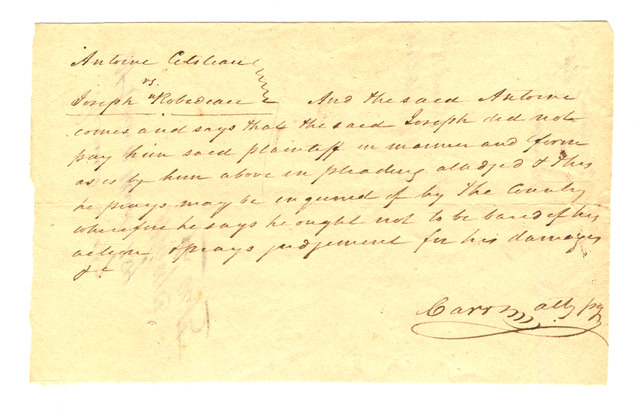 Antoine
vs.
Joseph Robedeau And the said Antoine
comes and says that the said Joseph did not
pay him said plaintiff in manner and form
as is by him above in pleading alledged & this
he prays may be inquired of by the Country
wherefore he says he ought not to be bared of his
action & prays judgement for his damages
&c
atty pq